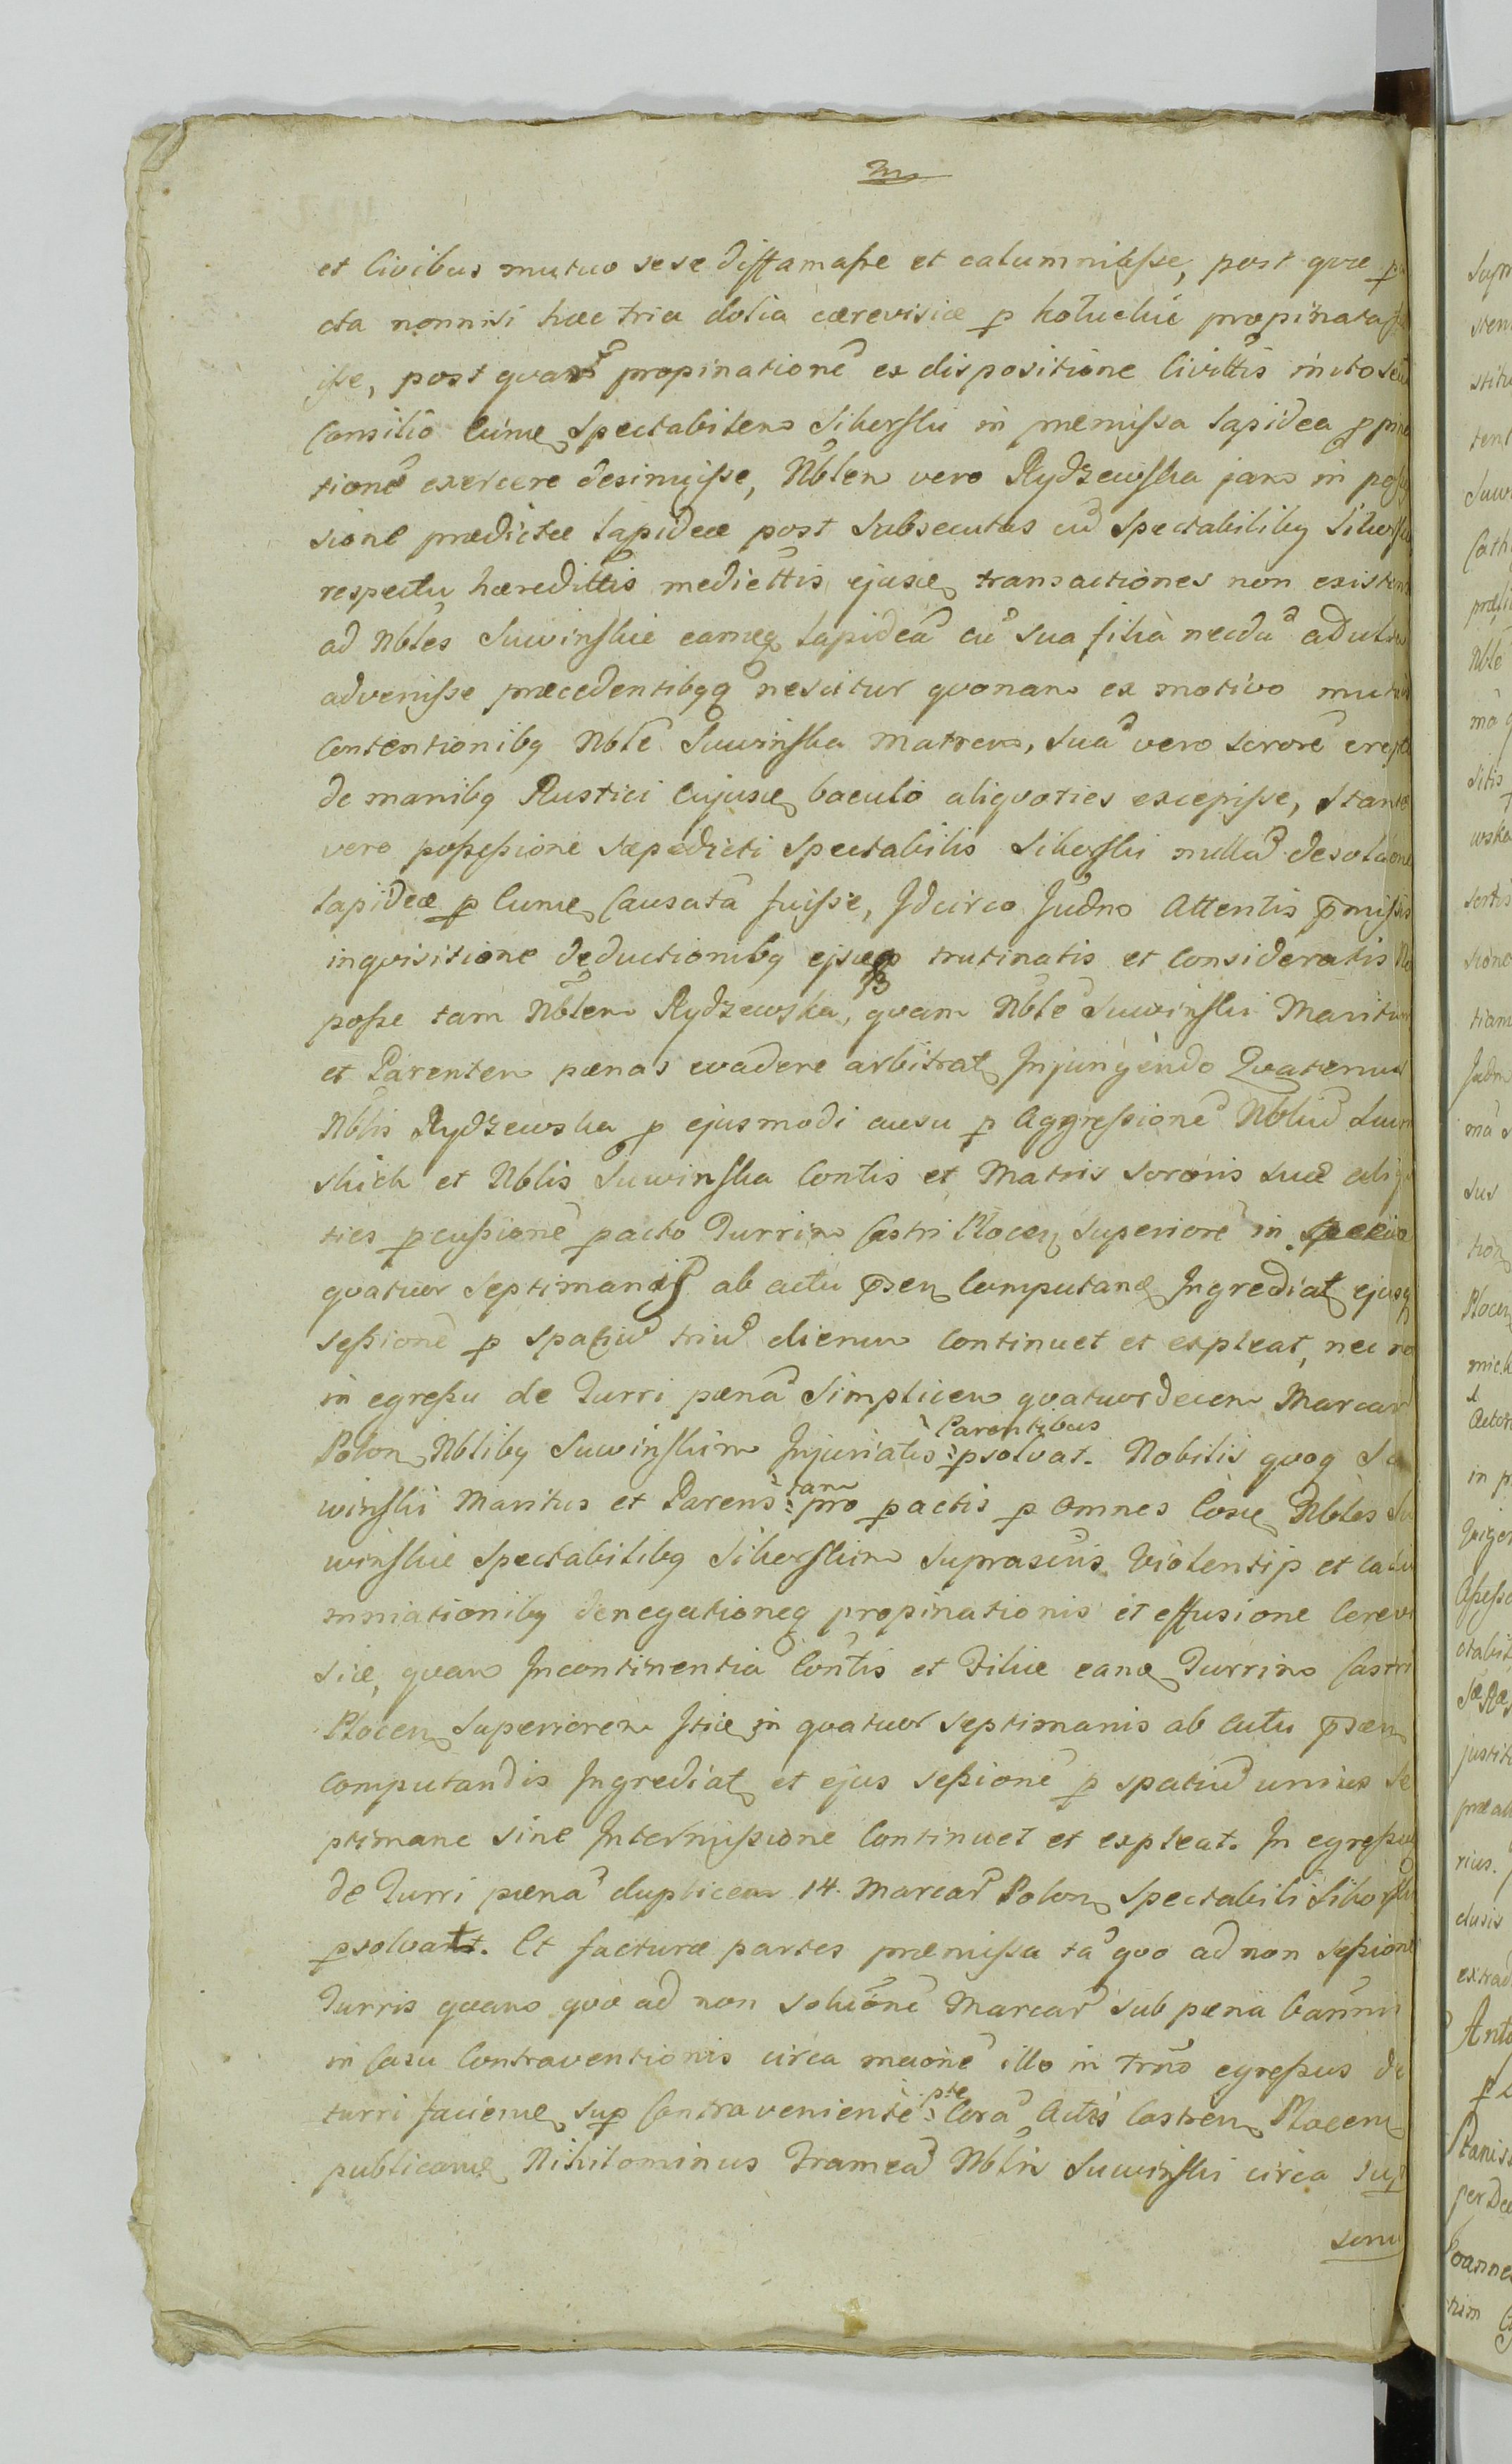 et Civibus mutuo sese diffamasse et calumniasse, post quæ p
cta nonnisi hæc tria dolia cærevisiæ p Kołuckie propinata fu
isse, post quam propinatione ex dispositione Civittis inito seu
Consilio Eunde Spectabilem Sikorski in præmissa lapidea ppina
tione exercere desinuisse, Nblem vero Rydzewska jam in posses
sione prædictæ lapideæ post subsecutas cu Spectabilibq Sikorskie
respectu hæredittis mediettis ejusd transactiones non existen
ad Nbles Suwinskie eamq lapidea cu sua filia necdu adulta
advenisse præcedentibqq nescitur quonam ex motivo mutuis
Contentionibq Nble Suwinska Matrem, sua vero sorore erepto
de manibq Rustici Cujusd baculo aliquoties excepisse, Stante
vero possessione sæpedicti Spectabilis Sikorski nulla desolaone
lapideæ p Eunde Causata fuisse, Idcirco Judno Attentis pmissis
inquisitione deductionibq ejsq trutinatis et Consideratis No
posse tam Nblem Rydzewska, quam Nble Suwinski Maritum
et Parentem pænas evadere arbitrat Injungendo Quatenus
Nblis Rydzewska p ejusmodi ausu p Aggressione Nbliu Suwin
skich et Nblis Suwinska Contis et Matris sororis suæ aliquo
ties pcussione pacto Turrim Castri Plocen Superiore in
quatuor septimanis ab actu psen Computand Ingrediat ejusq
sessione p spatiu triu dierum Continuet et expleat, nec no
in egressu de Turri pæna simplicem quatuordecem Marcar
Polon Nblibq Suwinskim Injuriatis Parentibus psolvat. Nobilis quoq Su
winski Maritus et Parens tam pro pactis p Omnes Cosd Nbles Su
winskie Spectabilibq Sikorskim suprascris Violentijs et calu
mniationibq denegationeq propinationis et effusione Cerevi
siæ, quam Incontinentia Contis et Filiæ eand Turrim Castri
Plocen Superiorem Itid in quatuor septimanis ab actu psen
computandis Ingrediat et ejus sessione p spatiu unius se
ptimane sine Intermissione Continuet et expleat. In egressu
de Turri pæna duplicem 14. Marcar Polon Spectabili Sikorski
psolvat. Et facturæ partes præmissa ta quo ad non sessione
Turris quam quo ad non soluone Marcar sub pæna banni
in Casu Contraventionis circa meone illo in trno egressus de
turri faciend sup Contraveniente pte Cora Actis Castren Plocen
publicand Nihilominus Frameа Nblis Suwinski circa sup
sonu